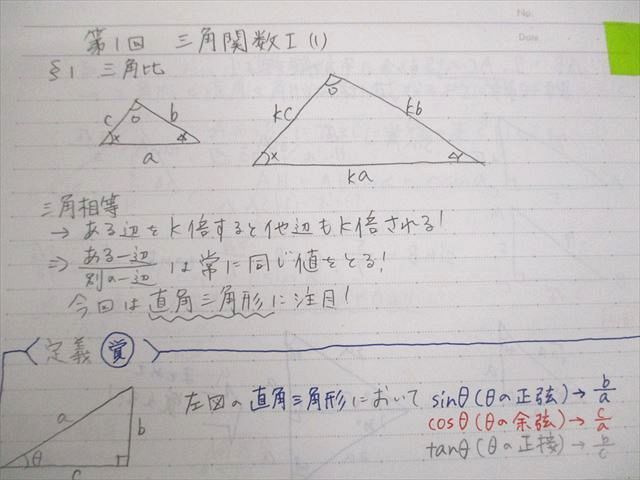 No.
Date
第1回 三角関数Ⅰ(1)
§1 三角比
c b a ○ ×
kc kb ka ○ ×
三角相等
→ ある辺をk倍すると他辺もk倍される!
⇒ ある一辺/別の一辺 は常に同じ値をとる!
今回は直角三角形に注目!
定義 覚
a b c θ
左図の直角三角形において sinθ(θの正弦)→ b/a
cosθ(θの余弦)→ c/a
tanθ(θの正接)→ b/c